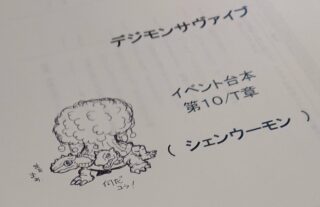 デジモンサヴァイブ
イベント台本
第10/T章
( シェンウーモン )
何だ
コラ!